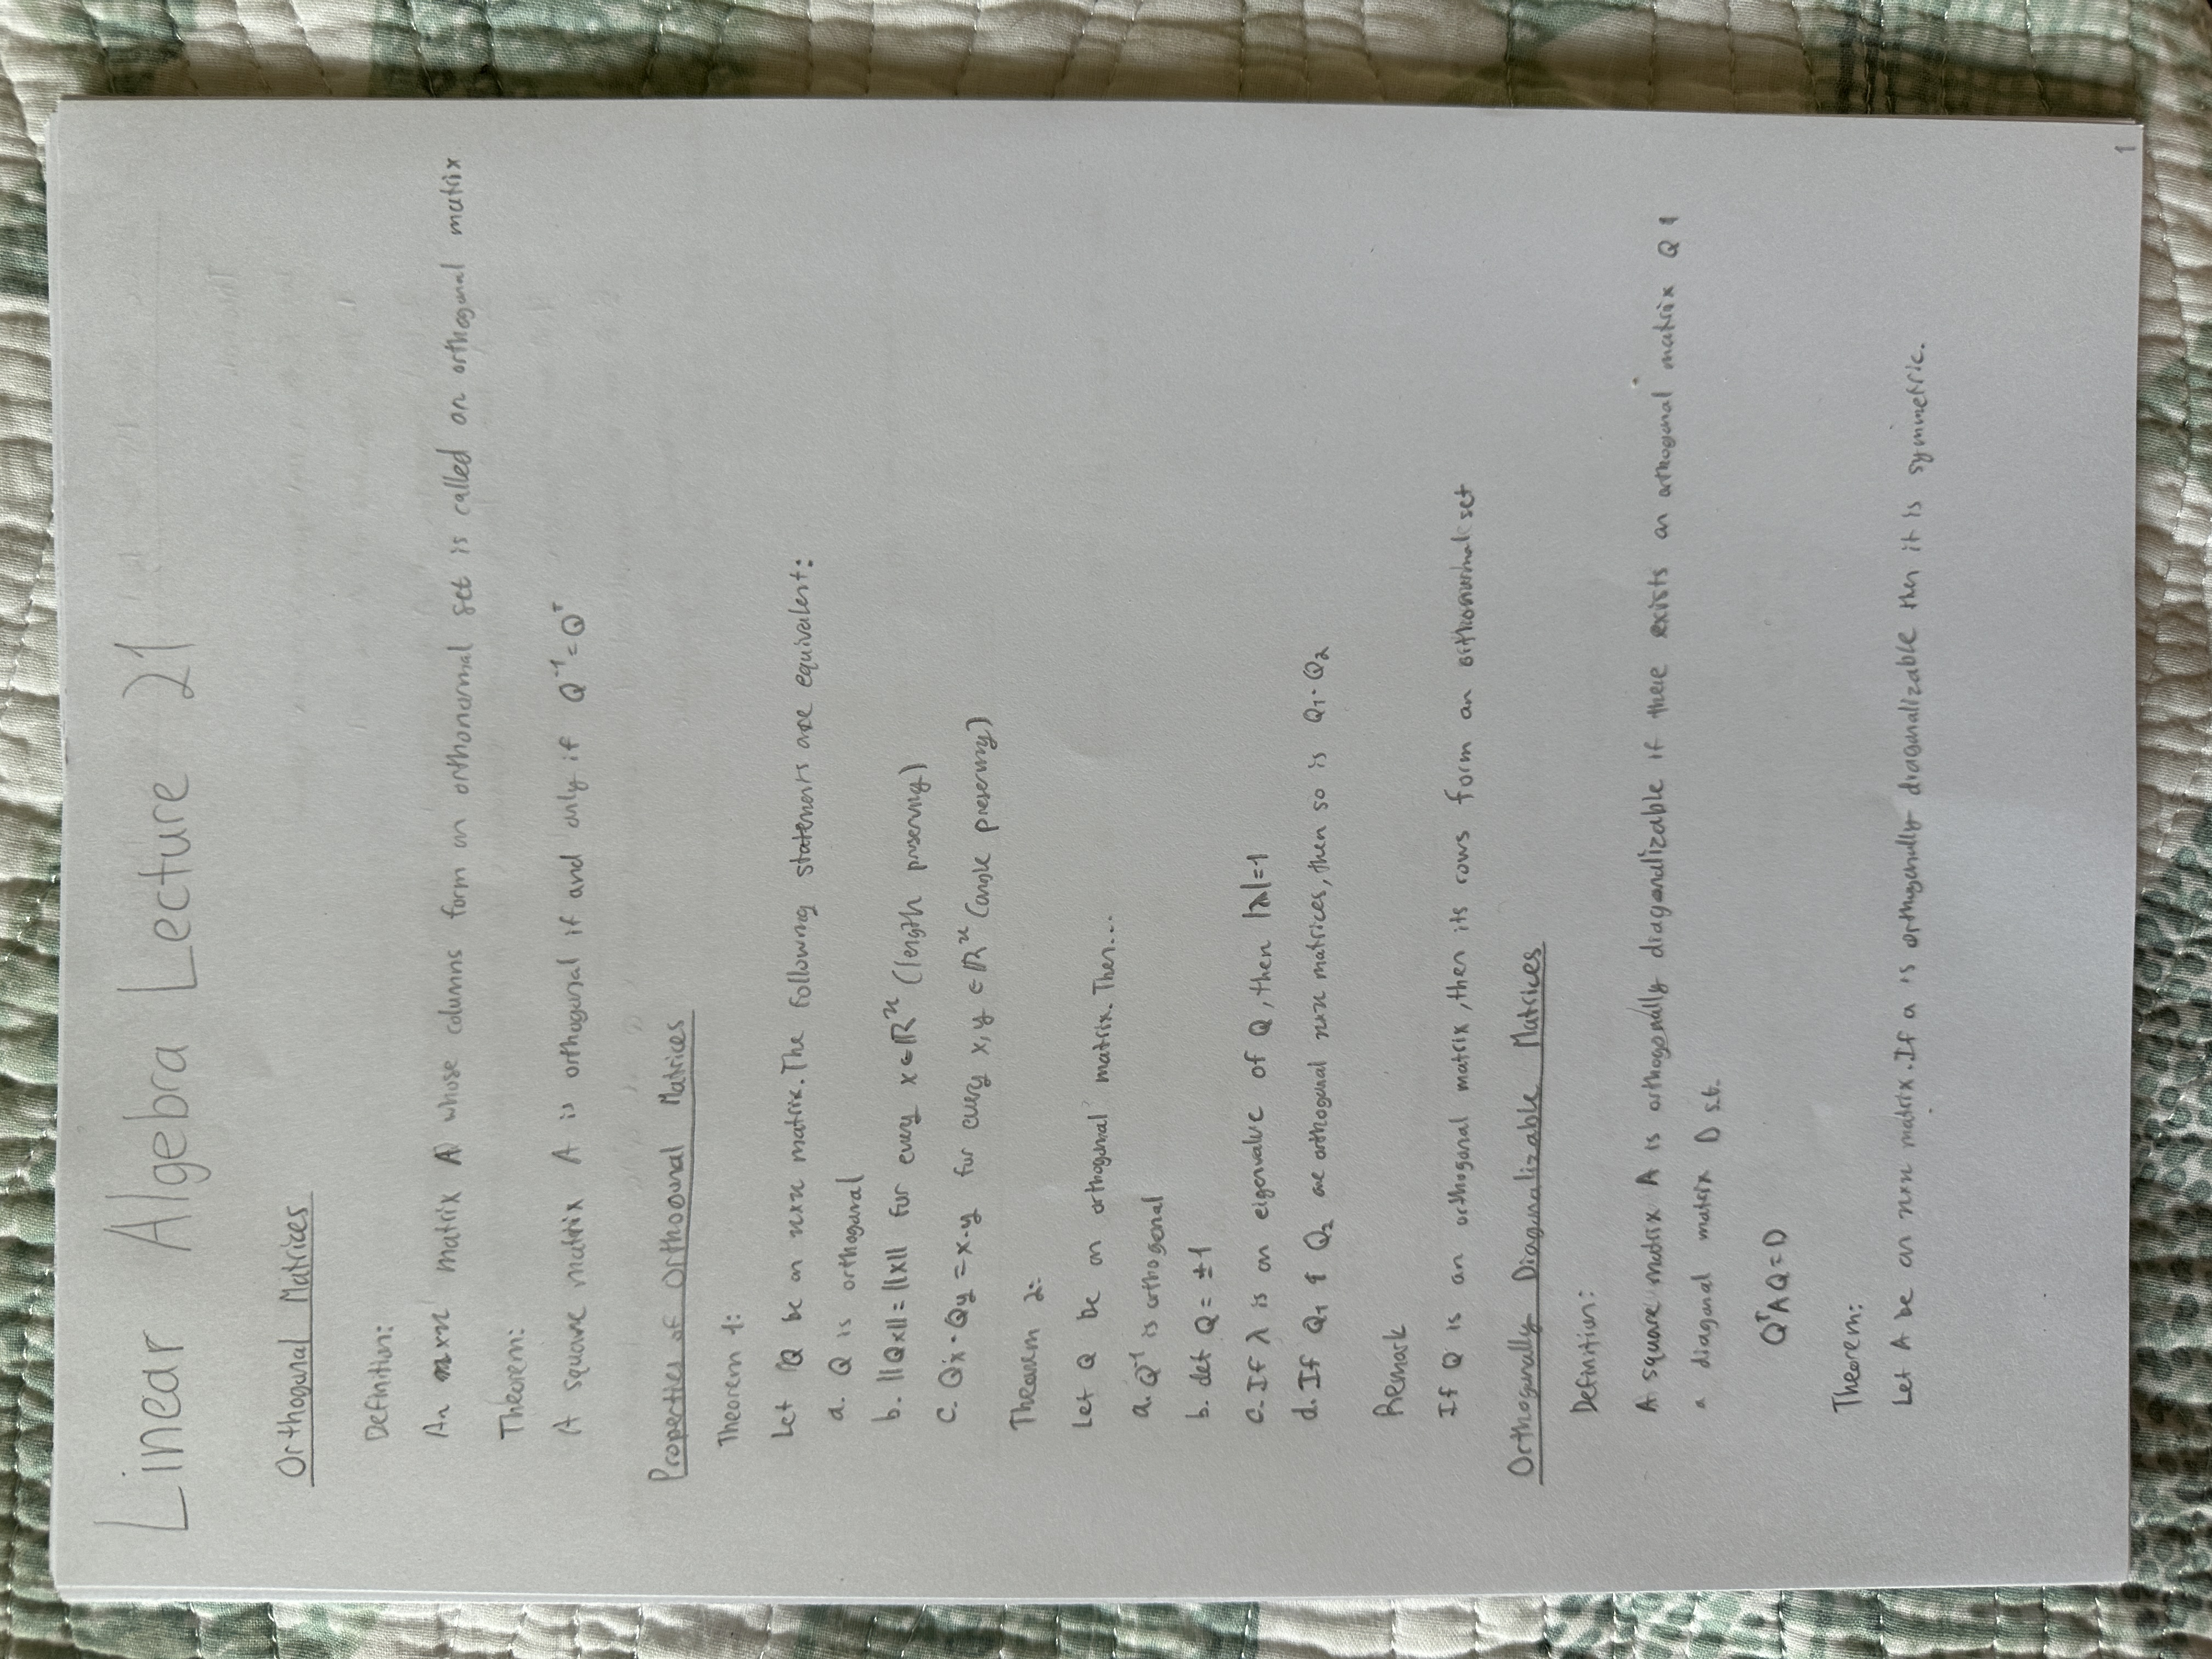 Linear Algebra Lecture 21
Orthogonal Matrices
Definition:
An n×n matrix A whose columns form an orthonormal set is called an orthogonal matrix
Theorem:
A square matrix A is orthogonal if and only if Q⁻¹=Qᵀ
Properties of Orthogonal Matrices
Theorem 1:
Let Q be an n×n matrix. The following statements are equivalent:
a. Q is orthogonal
b. ||Qx||=||x|| for every x∈ℝⁿ (length preserving)
c. Qx·Qy=x·y for every x,y∈ℝⁿ (angle preserving)
Theorem 2:
Let Q be an orthogonal matrix. Then...
a. Q⁻¹ is orthogonal
b. det Q = ±1
c. If λ is an eigenvalue of Q, then |λ|=1
d. If Q₁ & Q₂ are orthogonal n×n matrices, then so is Q₁·Q₂
Remark
If Q is an orthogonal matrix, then its rows form an orthonormal set
Orthogonally Diagonalizable Matrices
Definition:
A square matrix A is orthogonally diagonalizable if there exists an orthogonal matrix Q &
a diagonal matrix D s.t.
QᵀAQ=D
Theorem:
Let A be an n×n matrix. If a is orthogonally diagonalizable then it is symmetric.
1